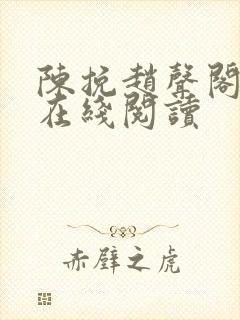 陳挽趙聲閣
在綫閱讀
赤壁之虎